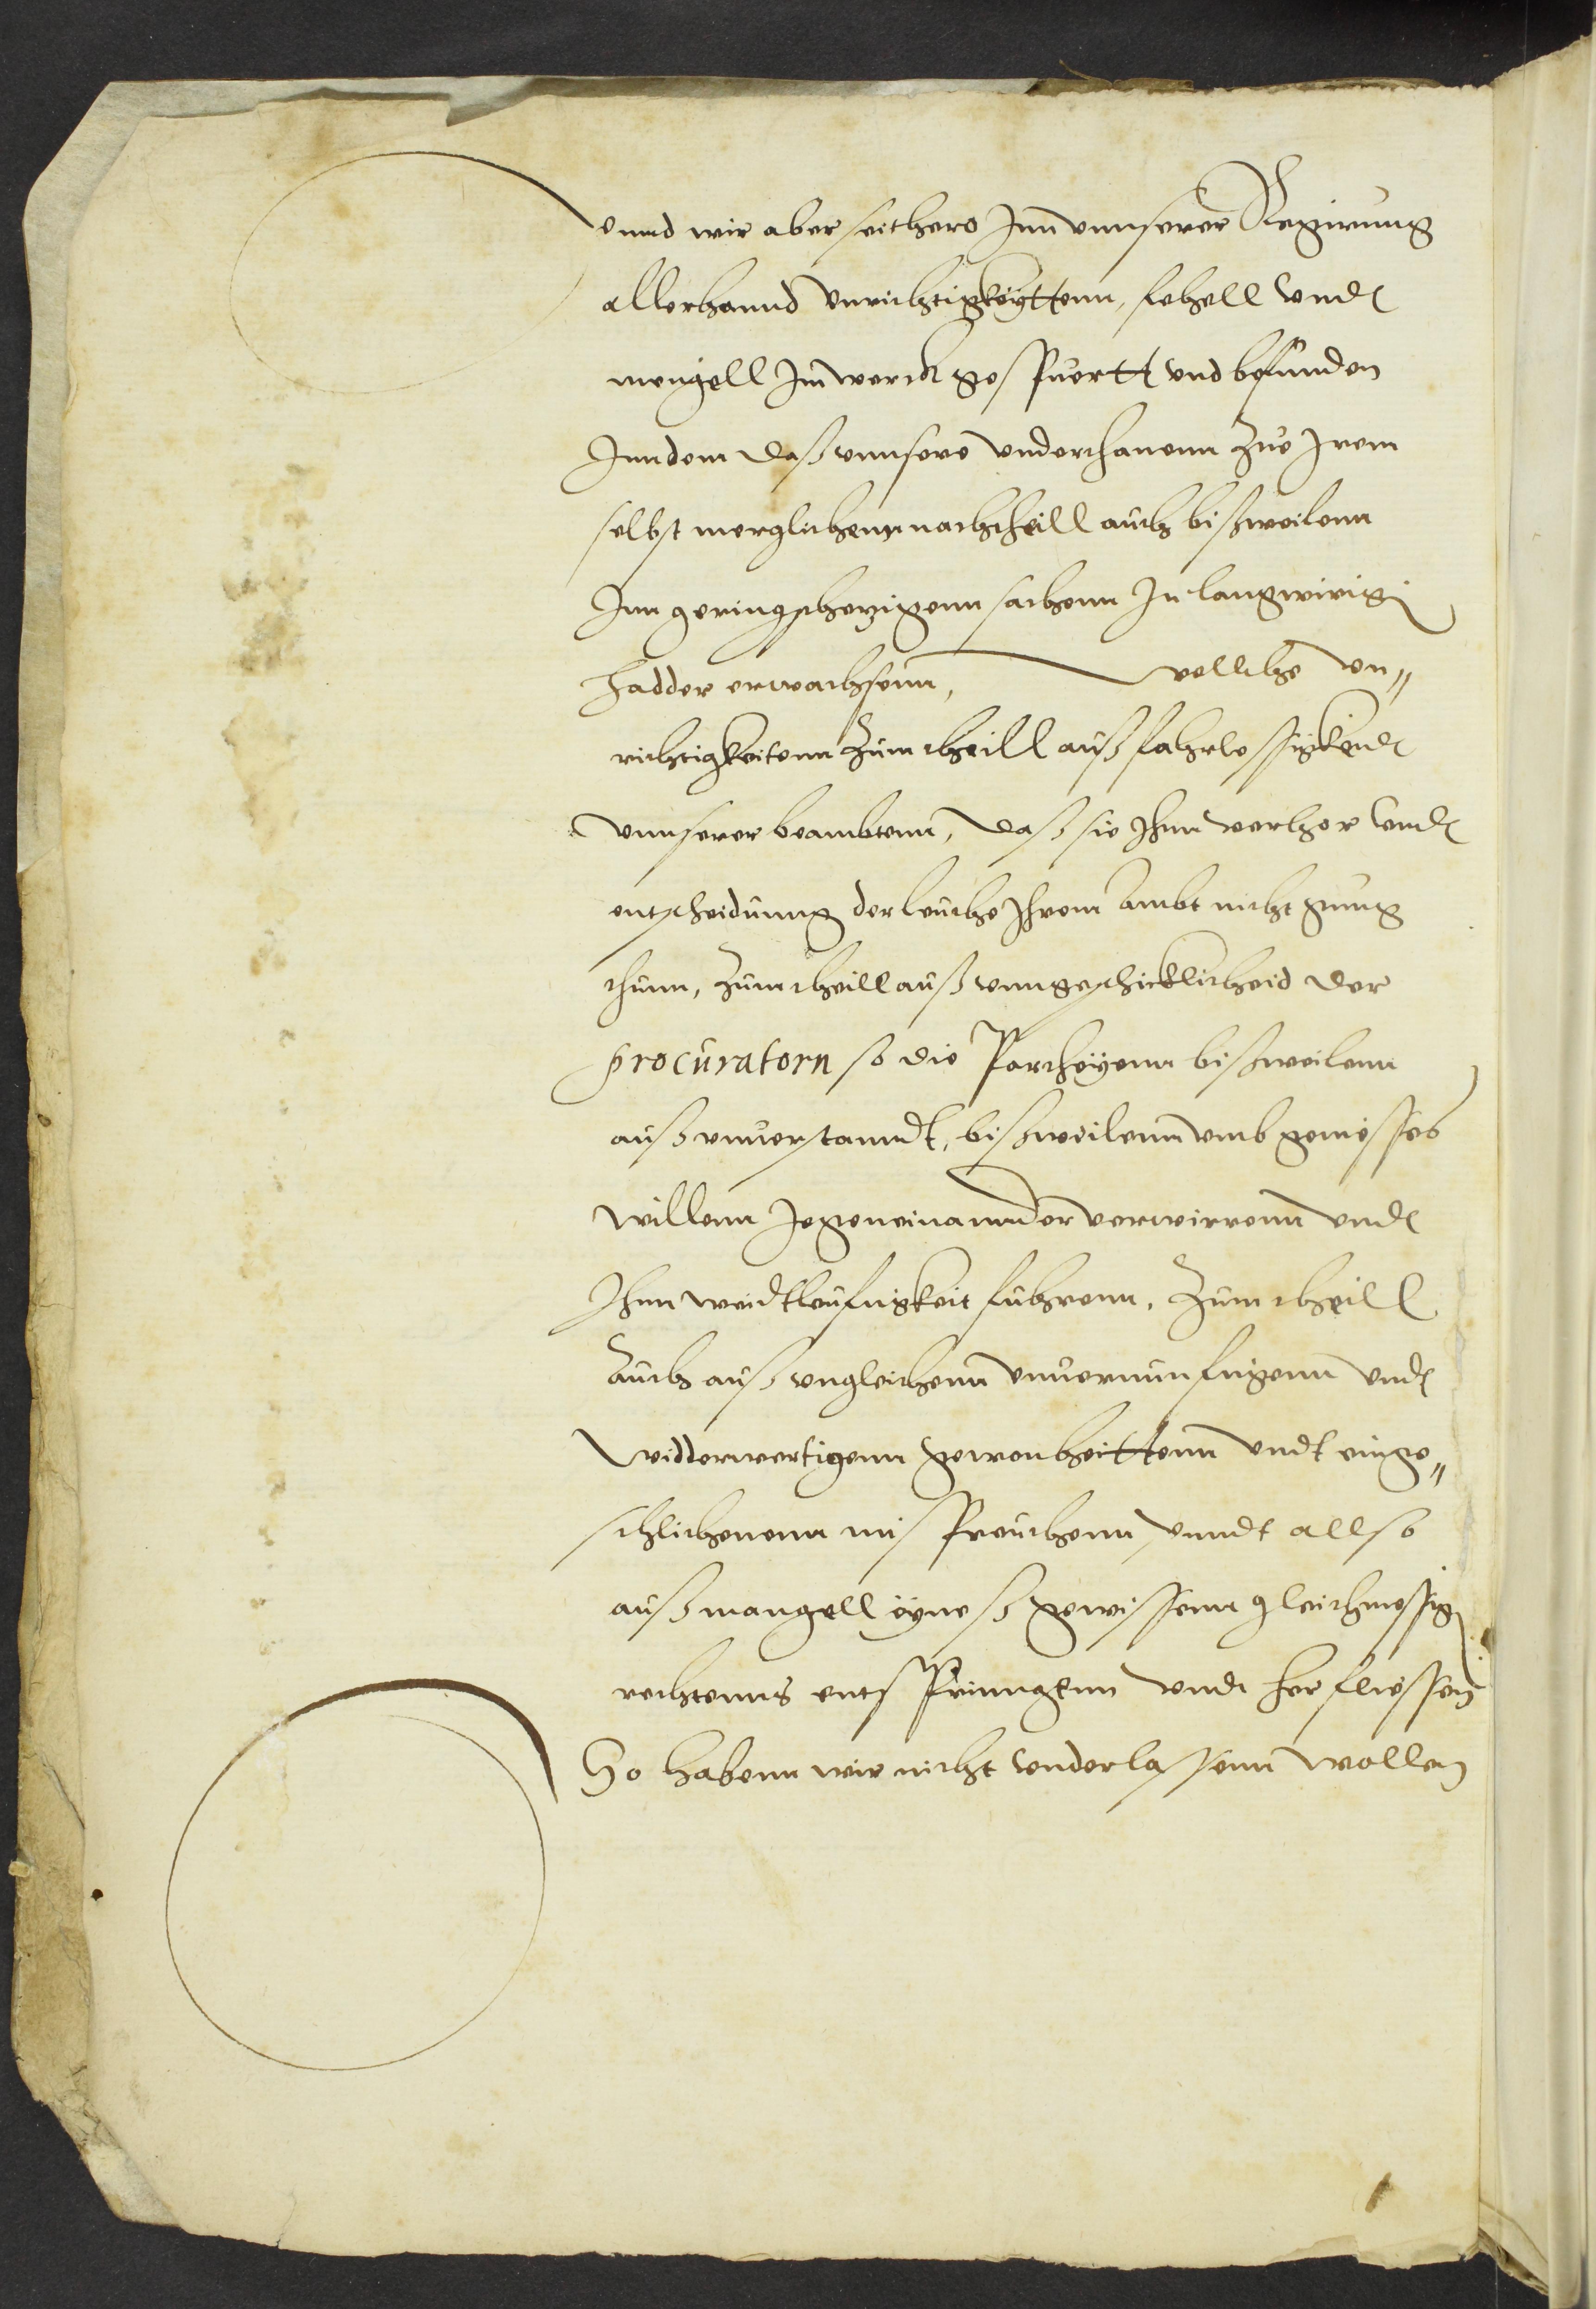 Vnnd wir aber seithero Inn vnnserer Regirung
allerhannd vnrichtigkeÿttenn, fehell vndt
mengell Im werck gespuertt vnd befunden
Inn dem daß vnnsere vnderthanenn zue Irem
selbst merglichenn nachtheill auch bißweilenn
Inn geringschetzigenn sachenn In langwirig
hadder erwachsenn, wellche vn„
richtigkeitenn zum theill auß fahrlessigkeidt
vnnserer beambtenn, daß sie Ihnn verhor vndt
entscheidunng der leuthe Ihrem ambt nicht gnug
thunn, zum theill auß vnngeschicklicheid der
procuratorn so die Partheÿenn bißweilenn
auß vnuerstanndt, bißweilenn vmb geniesses
willenn Iegeneinannder verwirrenn vndt
Ihnn weidtleufigkeit fuhrenn, zum theill
auch auß vngleichenn vnuernunfftigenn vndt
widderwertigenn gewonheittenn vndt einge„
schlichenenn mispreuchenn vnndt allso
auß mangell eÿneß gewissenn gleichmessig
rechtenns entsprinngenn vndt herfliessen
So habenn wir nicht vnderlassenn wollen